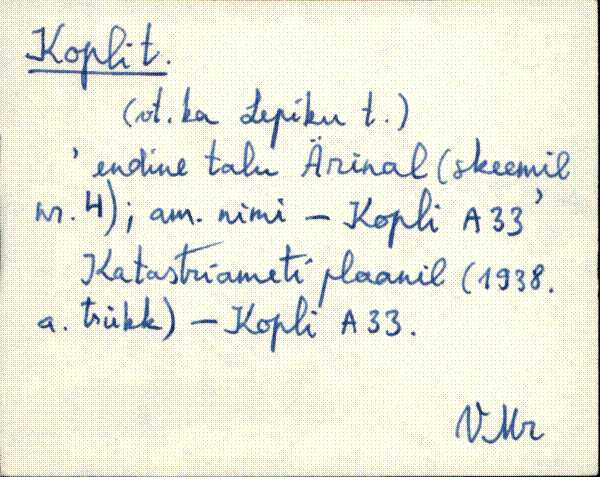 Kopli t.
(vt. ka Lepiku t.)
' endine talu Ärinal (skeemil
nr. 4); am. nimi – Kopli A 33'
Katastriameti plaanil (1938.
a. trükk) – Kopli A 33.
VMr